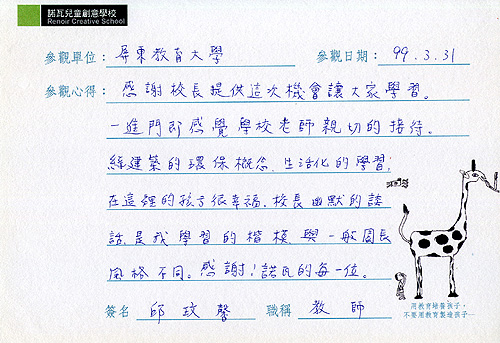 諾瓦兒童創意學校
Renoir Creative School
參觀單位：屏東教育大學 參觀日期：99.3.31
參觀心得：感謝校長提供這次機會讓大家學習。
一進門即感覺學校老師親切的接待。
綠建築的環保概念、生活化的學習；
在這裡的孩子很幸福。校長幽默的談
話是我學習的楷模，與一般園長
風格不同。感謝！諾瓦的每一位。
簽名 邱玟馨 職稱 教師
用教育培養孩子，
不要用教育製造孩子